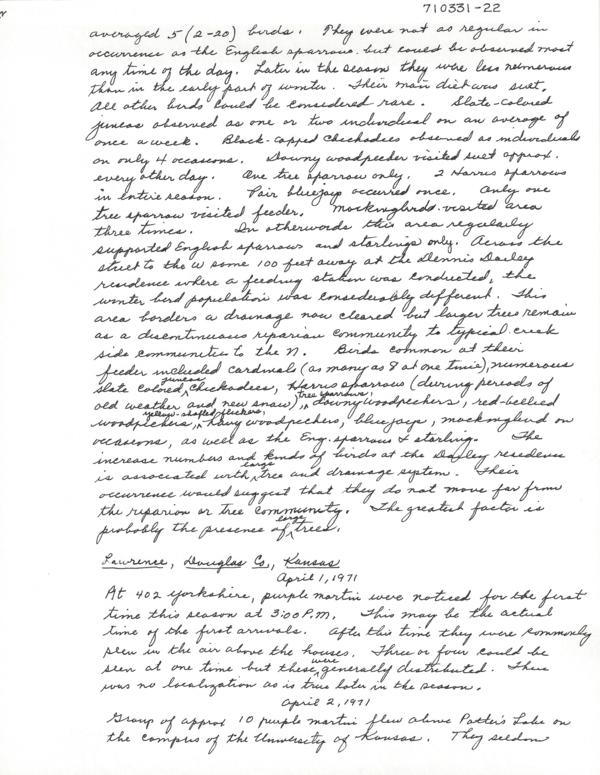 710331-22
averaged 5 (2-20) birds. They were not as regular in
occurrence as the English sparrows but could be observed most
any time of the day. Later in the season they were less numerous
than in the early part of winter. Their main diet was suet.
All other birds could be considered rare. Slate-colored
juncos observed as one or two individual on an average of
once a week. Black-capped Chickadees observed as individuals
on only 4 occasions. Downy woodpecker visited suet approx.
every other day. One tree sparrow only. 2 Harris sparrows
in entire season. Pair bluejays occurred once. Only one
tree sparrow visited feeder. Mockingbirdd visited area
three times. In otherwords this area regularly
supported English sparrows and starlings only. Across the
street to the W some 100 feet away at the Dennis Dailey
residence where a feeding station was conducted, the
winter bird population was considerably different. This
area borders a drainage now cleared but larger trees remain
as a discontinuous riparian community to typical creek
side communities to the N. Birds common at their
feeder included cardinals (as many as 8 at one time), numerous
slate colored juncos, Chickadees, Harris sparrow (during periods of
old weather and new snow), tree sparrows, downy woodpeckers, red-bellied
woodpeckers, yellow-shafted flickers, hairy woodpeckers, bluejays, mockingbird on
occasions, as well as the Eng. sparrows & starling. The
increase numbers and kinds of birds at the Dailey residence
is associated with large tree and drainage system. Their
occurrence would suggest that they do not move far from
the reparion or tree community. The greatest factor is
probably the presence of large trees.
Lawrence, Douglas Co., Kansas
April 1, 1971
At 402 Yorkshire, purple martin were noticed for the first
time this season at 3:00 P.M. This may be the actual
time of the first arrivals. After this time they were commonly
seen in the air above the houses. Three or four could be
seen at one time but these were generally distributed. There
was no localization as is true later in the season.
April 2, 1971
Group of approx 10 purple martin flew above Potter's Lake on
the campus of the University of Kansas. They seldom